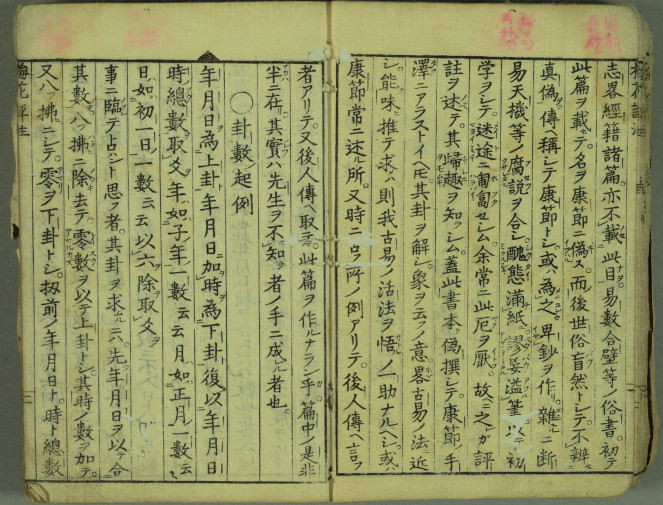 志畧經籍諸篇亦不載此目易數合壁等ノ俗書初テ
此篇ヲ載テ名ヲ康節ニ偽ス而後世俗盲然トシテ不辨
真偽傳ヘ稱シテ康節トシ或ハ為之卑鈔ヲ作リ雜ニ断
易天機等ノ腐説ヲ合シ醜態滿紙謬妄濫筆以テ初
学ヲシテ迷途ニ匍匐セシム余常ニ此厄ヲ厭フ故ニ之ガ評
註ヲ述テ其帰趣ヲ知ラシム蓋此書本偽撰シテ康節ノ手
澤ニアラストイヘ𪜈其卦ヲ解シ象ヲ云フノ意畧古易ノ法ニ近
シ能味ヒ推テ求ハ則我古易ノ活法ヲ悟ルノ一助ナルヘシ或ハ
康節常ニ述ル所又時ニ占フ所ノ例アリテ後人傳ヘ言フ
者アリテ又後人傳ヘ取テ此篇ヲ作ルナラン乎篇中ノ是非
半ニ在其實ハ先生ヲ不知者ノ手ニ成ル者也
〇卦數起例
年月日為上卦年月日加時為下卦復以年月日
時總數取爻年如子年一數云云月如正月一數云云
日如初一日一數云云以六除取爻ヲ
事ニ臨テ占ハント思フ者其卦ヲ求ルニハ先年月日ヲ以テ合
其數八ツ拂ニ除去テ零數ヲ以テ上卦トシ其時ノ數ヲ加テ
又八ツ拂ニシテ零ヲ下卦トシ扨前ノ年月日ト時ト總數
梅花評註